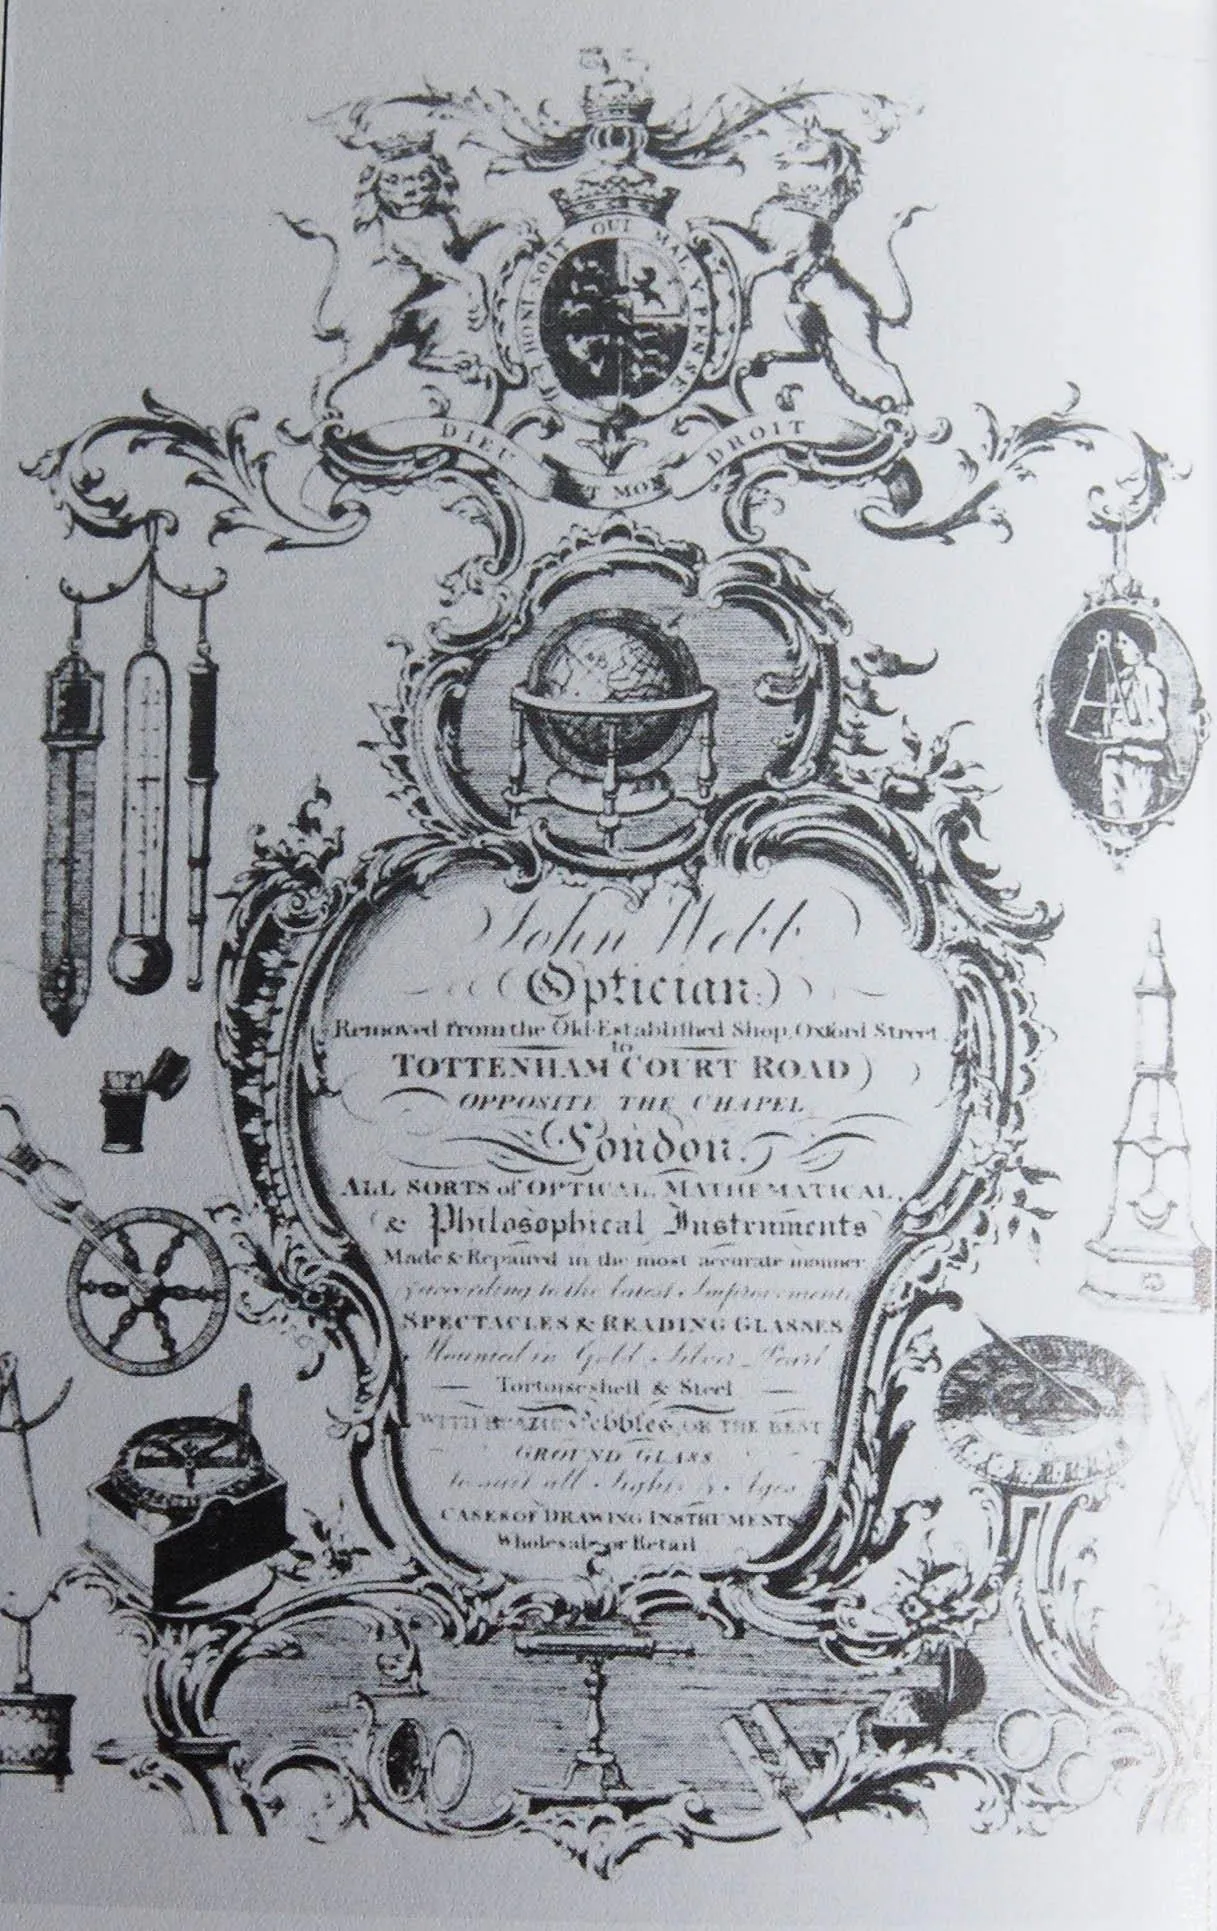 HONI·SOIT QUI MAL·Y·PENSE
DIEU ET MON DROIT
John Webb
Optician
Removed from the Old Established Shop, Oxford Street,
to
TOTTENHAM COURT ROAD
OPPOSITE THE CHAPEL
London.
ALL SORTS of OPTICAL, MATHEMATICAL,
& Philosophical Instruments
Made & Repaired in the most accurate manner
according to the latest Improvements
SPECTACLES & READING GLASSES
Mounted in Gold, Silver, Pearl
Tortoiseshell & Steel
WITH BRAZIL Pebbles, OR THE BEST
GROUND GLASS
to suit all Sights & Ages
CASES OF DRAWING INSTRUMENTS
Wholesale or Retail